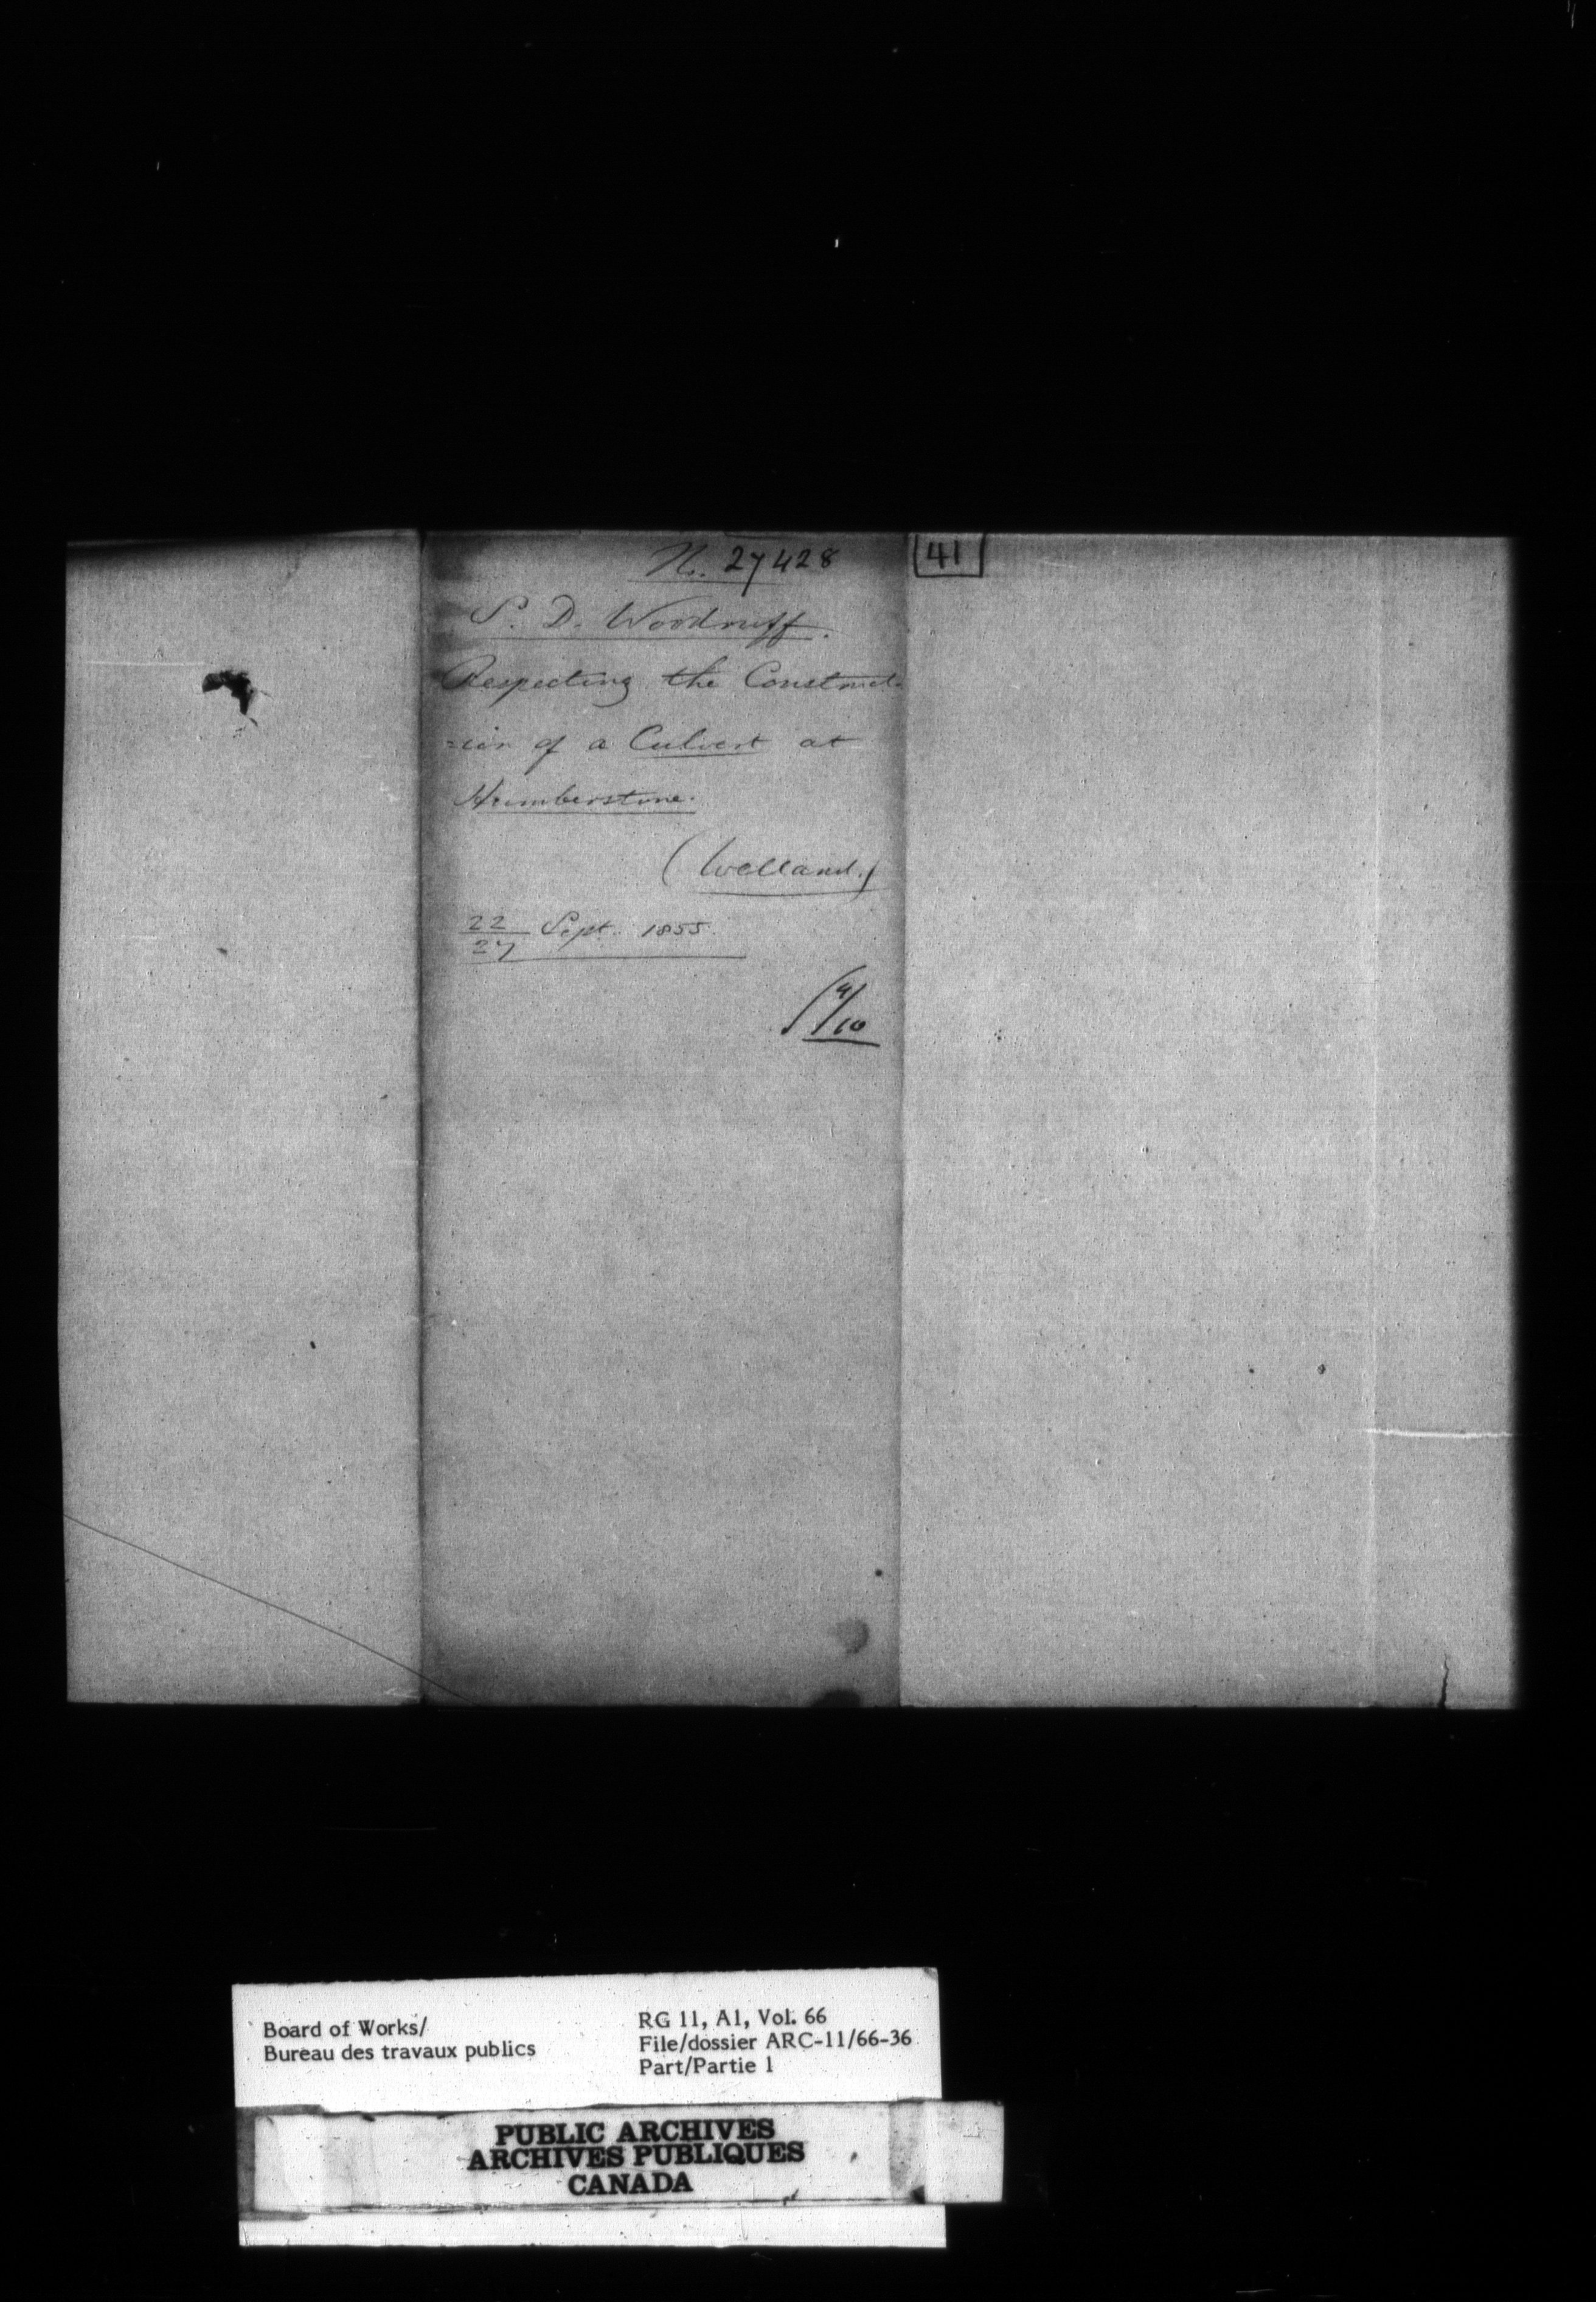 No. 27428
41
S. D. Woodruff.
Respecting the Construct-
=ion of a Culvert at
Humberstone.
(Welland.)
22/27 Sept. 1855.
4/10
Board of Works/
Bureau des travaux publics
RG 11, A1, Vol. 66
File/dossier ARC-11/66-36
Part/Partie 1
PUBLIC ARCHIVES
ARCHIVES PUBLIQUES
CANADA